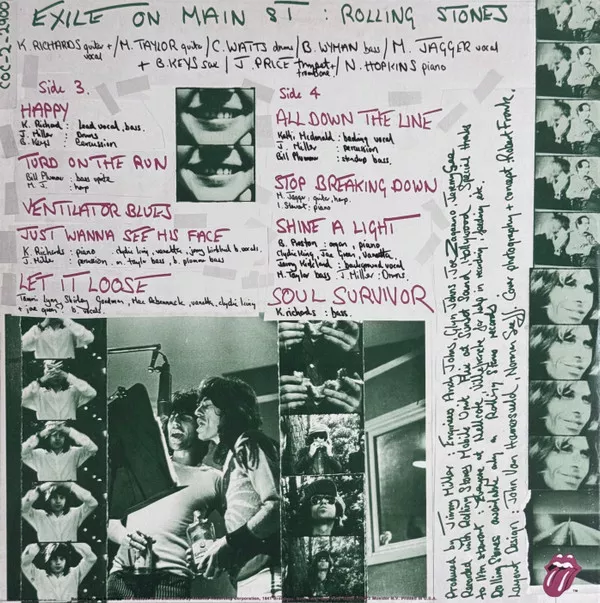 COC-2-2900
EXILE ON MAIN ST : ROLLING STONES
K. RICHARDS guitar + / M. TAYLOR guita / C. WATTS drums / B. WYMAN bass / M. JAGGER vocal
vocal
+ B. KEYS sax / J. PRICE trumpet + / N. HOPKINS piano
trombone
Side 3.
HAPPY
K. Richard : lead vocal, bass.
J. Miller : Drums
B. Keys : Percussion
TURD ON THE RUN
Bill Plummer : bass uprite
M. J. : harp
VENTILATOR BLUES
JUST WANNA SEE HIS FACE
K. Richards : piano . clydie king, vanetta, jerry kirkland b. vocals.
J. Miller : percussion . m. taylor bass, b. plummer bass
LET IT LOOSE
Tammi Lynn, Shirley Goodman, Mac Rebennack, vanetta, clydie king
+ joe green b. vocals.
Side 4
ALL DOWN THE LINE
Kathi Mcdonald : backing vocal
J. Miller : percussion
Bill Plummer : standup bass.
STOP BREAKING DOWN
M. Jagger : guitar, harp.
I. Stewart : piano
SHINE A LIGHT
B. Preston : organ, piano
Clydie king, Joe Green, Vanetta,
Jesse Kirkland : background vocal
M. Taylor bass . J. Miller : Drums.
SOUL SURVIVOR
K. richards : bass.
Produced by Jimmy Miller : Engineers Andy Johns, Glyn Johns, Joe Zagarino, Jeremy Gee
Recorded with Rolling Stones Mobile Unit. Mix at Sunset Sound, Hollywood. Special thanks
to Ian stewart : Everyone at Nellcote Villefranche for help in recording, feeding etc.
Rolling Stones available only on Rolling Stones records
Layout Design : John Van Hamersveld, Norman Seeff: Cover photography + concept Robert Franke,